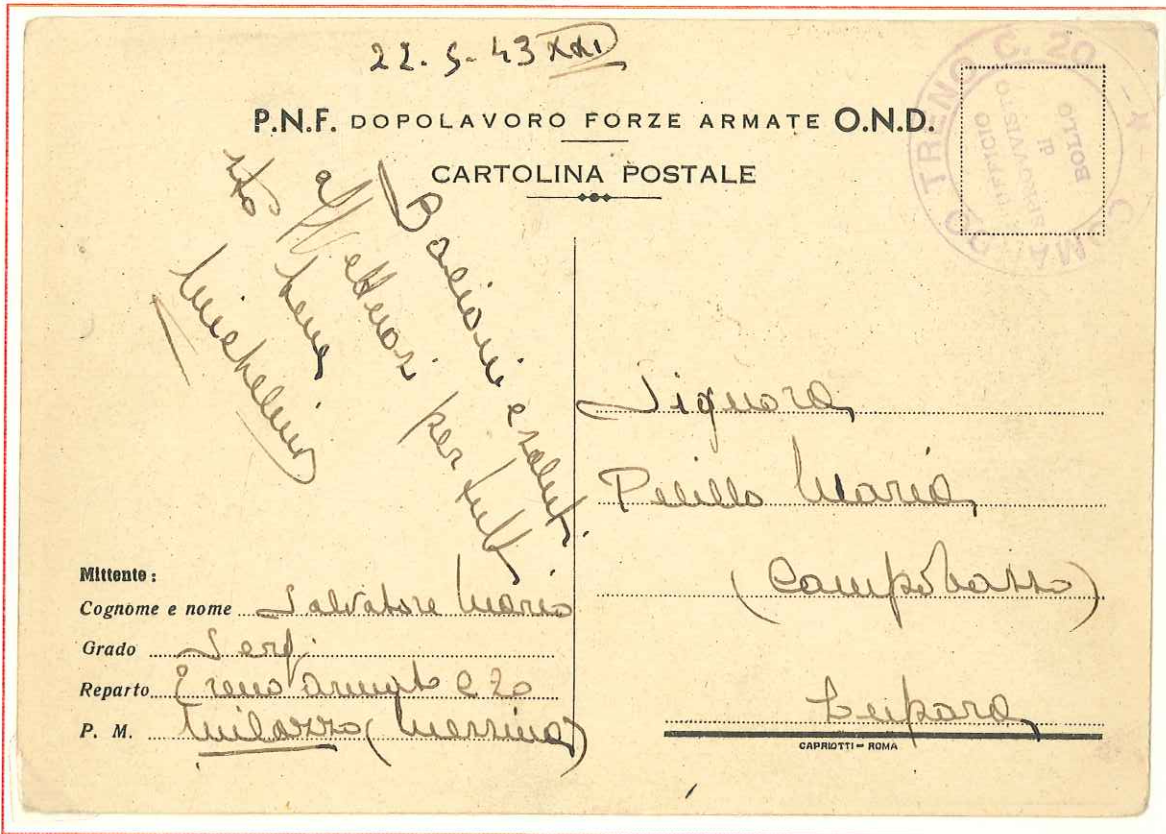 22. 5. 43 XXI
P.N.F. DOPOLAVORO FORZE ARMATE O.N.D.
CARTOLINA POSTALE
COMANDO TRENO C. 20
UFFICIO
SPROVVISTO
di
BOLLO
Bacioni e saluti
affettuosi per tutti
sto bene
Michelino
Signora
Pelillo Maria
(Campobasso)
Lupara
Mittente :
Cognome e nome Salvatore Mario
Grado Serg.
Reparto Treno armato C 20
P. M. Milazzo (Messina)
CAPRIOTTI - ROMA